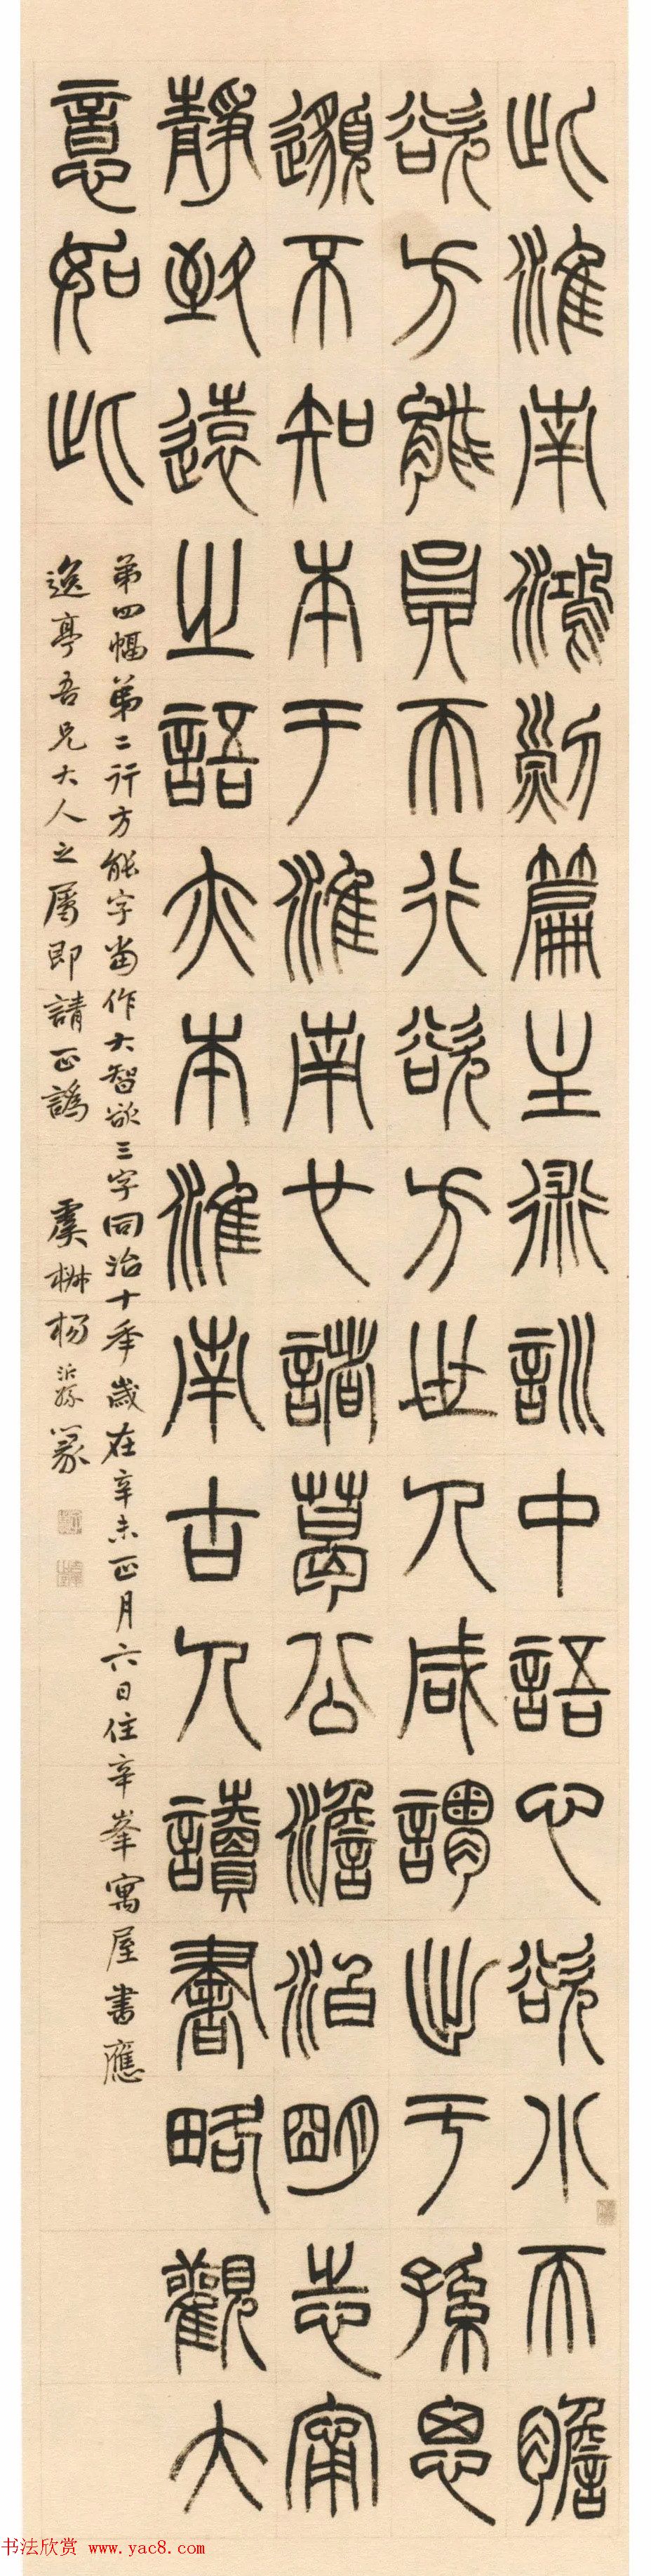 此淮南鴻烈篇主術訓中語心欲小而膽
欲方能員而行欲方世人咸謂出于孫思
邈不知本于淮南也諸葛公澹泊明志甯
靜致遠之語亦本淮南古人讀書略觀大
意如此
弟四幅弟二行方能字當作大智欲三字同治十秊歲在辛未正月六日住辛峯寓屋書應
逸亭吾兄大人之屬即請正譌 虞楊沂孫篆
书法欣赏 www.yac8.com